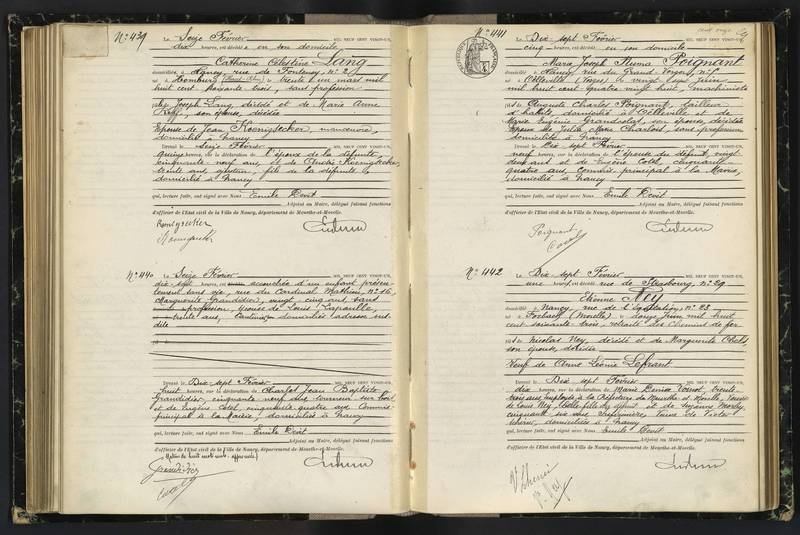 N° 439
Le Seize Février MIL NEUF CENT VINGT-UN,
dix heures, est décédée en son domicile
Catherine Célestine Lang
domiciliée à Nancy, rue de Fontenoy, n° 2
née à Hombourg le trente un mars mil
huit cent soixante trois, sans profession
fille de Joseph Lang, décédé et de Marie Anne
son épouse, décédée
Epouse de Jean Koenigsecker, manoeuvre,
domicilié à Nancy
Dressé le Seize Février MIL NEUF CENT VINGT-UN,
quinze heures, sur la déclaration de l'époux de la défunte,
cinquante neuf ans et de André Koenigsecker
trente ans, fils de la défunte
domiciliés à Nancy
qui, lecture faite, ont signé avec Nous Emile Revit
Adjoint au Maire, délégué faisant fonctions
d'officier de l'État civil de la Ville de Nancy, département de Meurthe-et-Moselle.
N° 440
Le Seize Février MIL NEUF CENT VINGT-UN,
dix-sept heures est accouchée d'un enfant présen-
tement sans vie, rue du Cardinal Mathieu, n° 16,
Marguerite Grandidier, vingt cinq ans sans
profession, épouse de Louis
trente ans, domiciliés adresse sus-
dite
Dressé le Dix-sept Février MIL NEUF CENT VINGT-UN,
huit heures, sur la déclaration de Charles Jean Baptiste
Grandidier, cinquante neuf ans, tourneur sur bois
et de Eugène Cotel, cinquante quatre ans Commis-
principal à la Mairie, domiciliés à Nancy
qui, lecture faite, ont signé avec Nous Emile Revit
Adjoint au Maire, délégué faisant fonctions
d'officier de l'État civil de la Ville de Nancy, département de Meurthe-et-Moselle.
Grandidier
N° 441
Le Dix-sept Février MIL NEUF CENT VINGT-UN,
cinq heures, est décédé en son domicile
Marie Joseph Numa Poignant
domicilié à Nancy, rue du Grand Verger, n°
né à Celleville (Vosges) le vingt sept Juin
mil huit cent quatre vingt huit, machiniste
fils de Auguste Charles Poignant, tailleur
d'habits, domicilié à Celleville et de
Marie Eugénie Grandcolas, son épouse, décédée
Epoux de Julie Marie Charlois, sans profession
domiciliée à Nancy
Dressé le Dix-sept Février MIL NEUF CENT VINGT-UN,
neuf heures, sur la déclaration de l'épouse du défunt, vingt
deux ans et de Eugène Cotel, cinquante
quatre ans, Commis principal à la Mairie,
domiciliés à Nancy
qui, lecture faite, ont signé avec Nous Emile Revit
Adjoint au Maire, délégué faisant fonctions
d'officier de l'État civil de la Ville de Nancy, département de Meurthe-et-Moselle.
Poignant
N° 442
Le Dix-sept Février MIL NEUF CENT VINGT-UN,
une heure, est décédé rue de Strasbourg, n° 29
Etienne Ney
domicilié à Nancy, rue de l'Equitation, n° 28
né à Forbach (Moselle) le douze Juin mil huit
cent soixante trois, retraité des Chemins de fer
fils de Nicolas Ney, décédé et de Marguerite
son épouse, décédée
Veuf de Anne Léonie Lefrant
Dressé le Dix sept Février MIL NEUF CENT VINGT-UN,
dix heures, sur la déclaration de Marie Denise Voinot, trente-
trois ans employée à la Préfecture de Meurthe et Moselle, épouse
de Louis Ney, belle-fille du défunt et de Suzanne
cinquante six ans, infirmière, Veuve de Victor
domiciliées à Nancy
qui, lecture faite, ont signé avec Nous Emile Revit
Adjoint au Maire, délégué faisant fonctions
d'officier de l'État civil de la Ville de Nancy, département de Meurthe-et-Moselle.